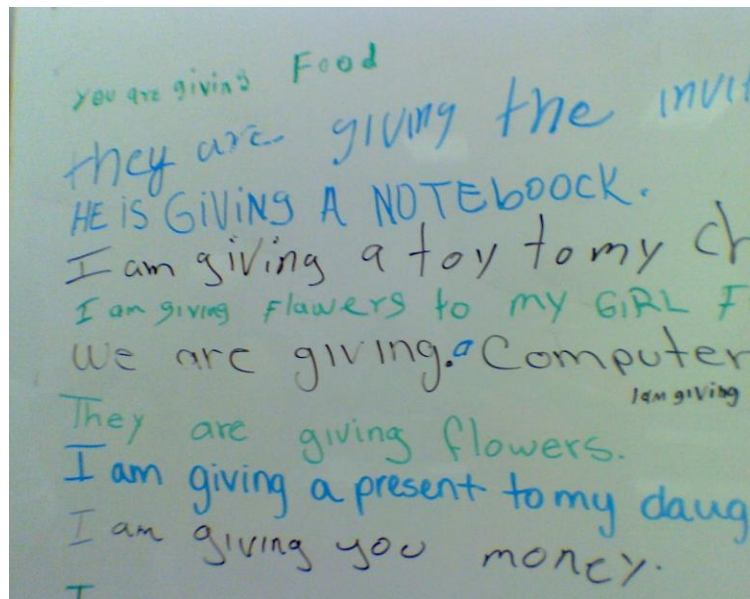 you are giving Food
they are giving the invit
HE iS GiViNG A NOTEbOOCK.
I am giving a toy to my ch
I am giving flawers to my GiRL F
We are giving. a Computer
I am giving
They are giving flowers.
I am giving a present to my daug
I am giving you money.
I